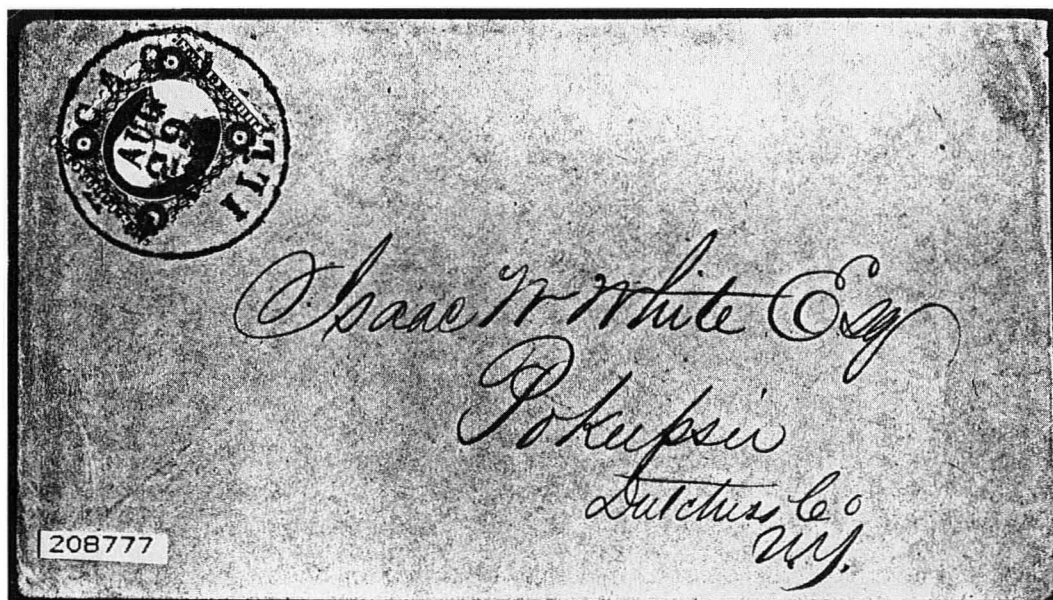 ILL
AUG
29
Isaac W White Esq
Pokeepsie
Dutchess Co
N.Y.
208777